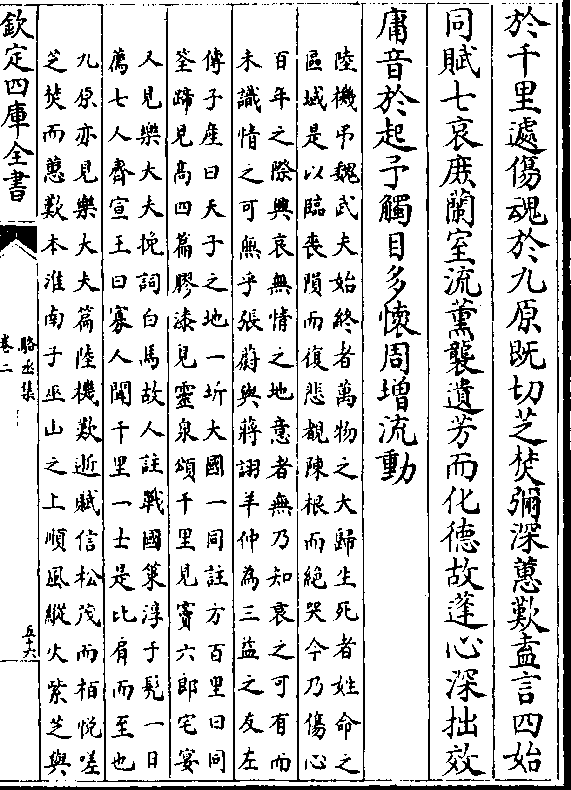 於千里遽傷魂於九原既切芝焚彌深蕙歎盍言四始
同賦七哀庶蘭室流薰襲遺芳而化德故蓬心深拙效
庸音於起予觸目多懷周增流動
陸機弔魏武夫始終者萬物之大歸生死者姓命之
區域是以臨喪殞而復悲覩陳根而絕哭今乃傷心
百年之際興哀無情之地意者無乃知哀之可有而
未識情之可無乎張蔚與蔣詡羊仲為三益之友左
傳子産曰天子之地一圻大國一同註方百里曰同
筌蹄見高四篇膠漆見靈泉頌千里見竇六郎宅宴
人見樂大夫挽詞白馬故人註戰國策淳于髠一日
薦七人齊宣王曰寡人聞千里一士是比肩而至也
九原亦見樂大夫篇陸機歎逝賦信松茂而栢悅嗟
芝焚而蕙歎本淮南子巫山之上順風縱火紫芝與
欽定四庫全書
駱丞集
卷二
五十六